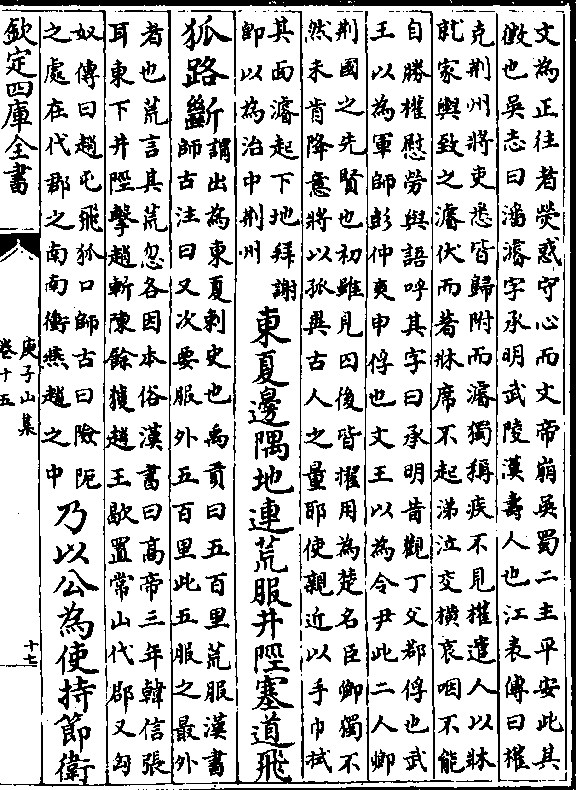 文為正往者熒惑守心而文帝崩吳蜀二主平安此其
徴也吳志曰潘濬字承明武陵漢壽人也江表傳曰權
克荆州將吏悉皆歸附而濬獨稱疾不見權遣人以牀
就家輿致之濬伏面著牀席不起涕泣交横哀咽不能
自勝權慰勞與語呼其字曰承明昔觀丁父鄀俘也武
王以為軍師彭仲爽申俘也文王以為令尹此二人卿
荆國之先賢也初雖見囚後皆擢用為楚名臣卿獨不
然未肯降意將以孤異古人之量耶使親近以手巾拭
其面濬起下地拜謝
即以為治中荆州
東夏邊隅地連荒服井陘塞道飛
狐路斷
謂出為東夏刺史也禹貢曰五百里荒服漢書
師古注曰又次要服外五百里此五服之最外
者也荒言其荒忽各因本俗漢書曰高帝三年韓信張
耳東下井陘擊趙斬陳餘獲趙王歇置常山代郡又匈
奴傳曰趙屯飛狐口師古曰險阨
之處在代郡之南南衝燕趙之中
乃以公為使持節衛
欽定四庫全書
庚子山集
卷十五
十七